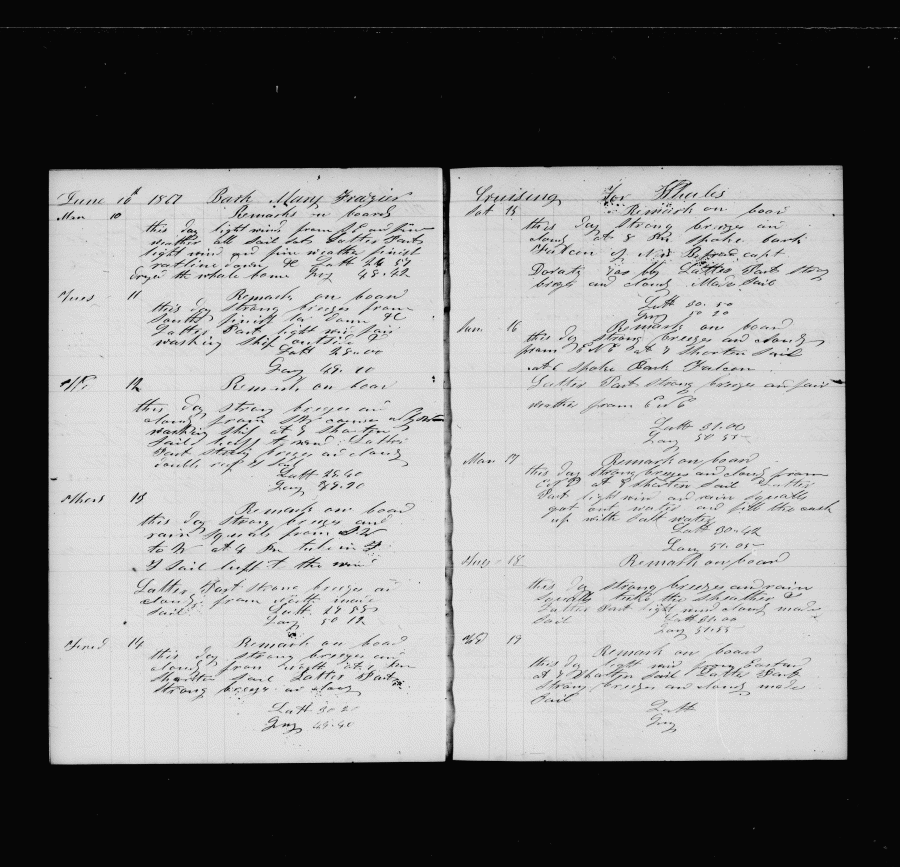 June 10th 1867 Bark Mary Frazier
Mon 10 Remarks on board
this day light wind from S E and fine
weather all sail sets Latter Part
light wind and fine weather finist
ratline down &c Latt 28 57
the whole home Long 48.42
Tues 11 Remark on board
this day strong breezes from
South finist &c
Latter Part light wind fair
washing ship outside
Latt 28.00
Long 49.10
12 Remark on board
this day strong breezes and
cloudy from SW
washing ship at 8 shorten
sail kept to wind Latter
Part strong breezes and cloudy
double reef
Latt 28.40
Long 49.20
13 Remark on board
this day strong breezes and
rain squals from SW
to W at 4 Pm
sail kept to the wind
Latter Part strong breezes and
cloudy from north made
sail Latt 29 55
Long 50 12
14 Remark on board
this day strong breezes and
cloudy from night at Pm
shorten sail Latter Part
strong breezes and cloudy
Latt 30.20
Long 49.40
Cruising For Whales
Sat 15 Remark on board
this day strong breezes and
cloudy at 8 Pm spoke bark
Falcon of New Bedford capt
Latter Part strong
breeze and cloudy Made sail
Latt 30.50
Long 50 20
Sun 16 Remark on board
this day strong breezes and cloudy
from E N E at 7 shorten sail
At 6 spoke Bark Falcon
Latter Part strong breezes and fair
weather from E N E
Latt 31.00
Long 50 55
Mon 17 Remark on board
this day strong breezes and cloudy from
at 8 shorten sail Latter
Part light win and rain squalls
got out water and fill the cask
up with salt water
Latt 30.42
Long 51.05
Tues 18 Remark on board
this day strong breezes and rain
squalls
Latter Part light wind cloudy made
sail Latt 31.00
Long 51.55
Wed 19 Remark on board
this day light win from Eastard
at 7 shorten sail Latter Part
strong breezes and cloudy made
sail
Latt
Long